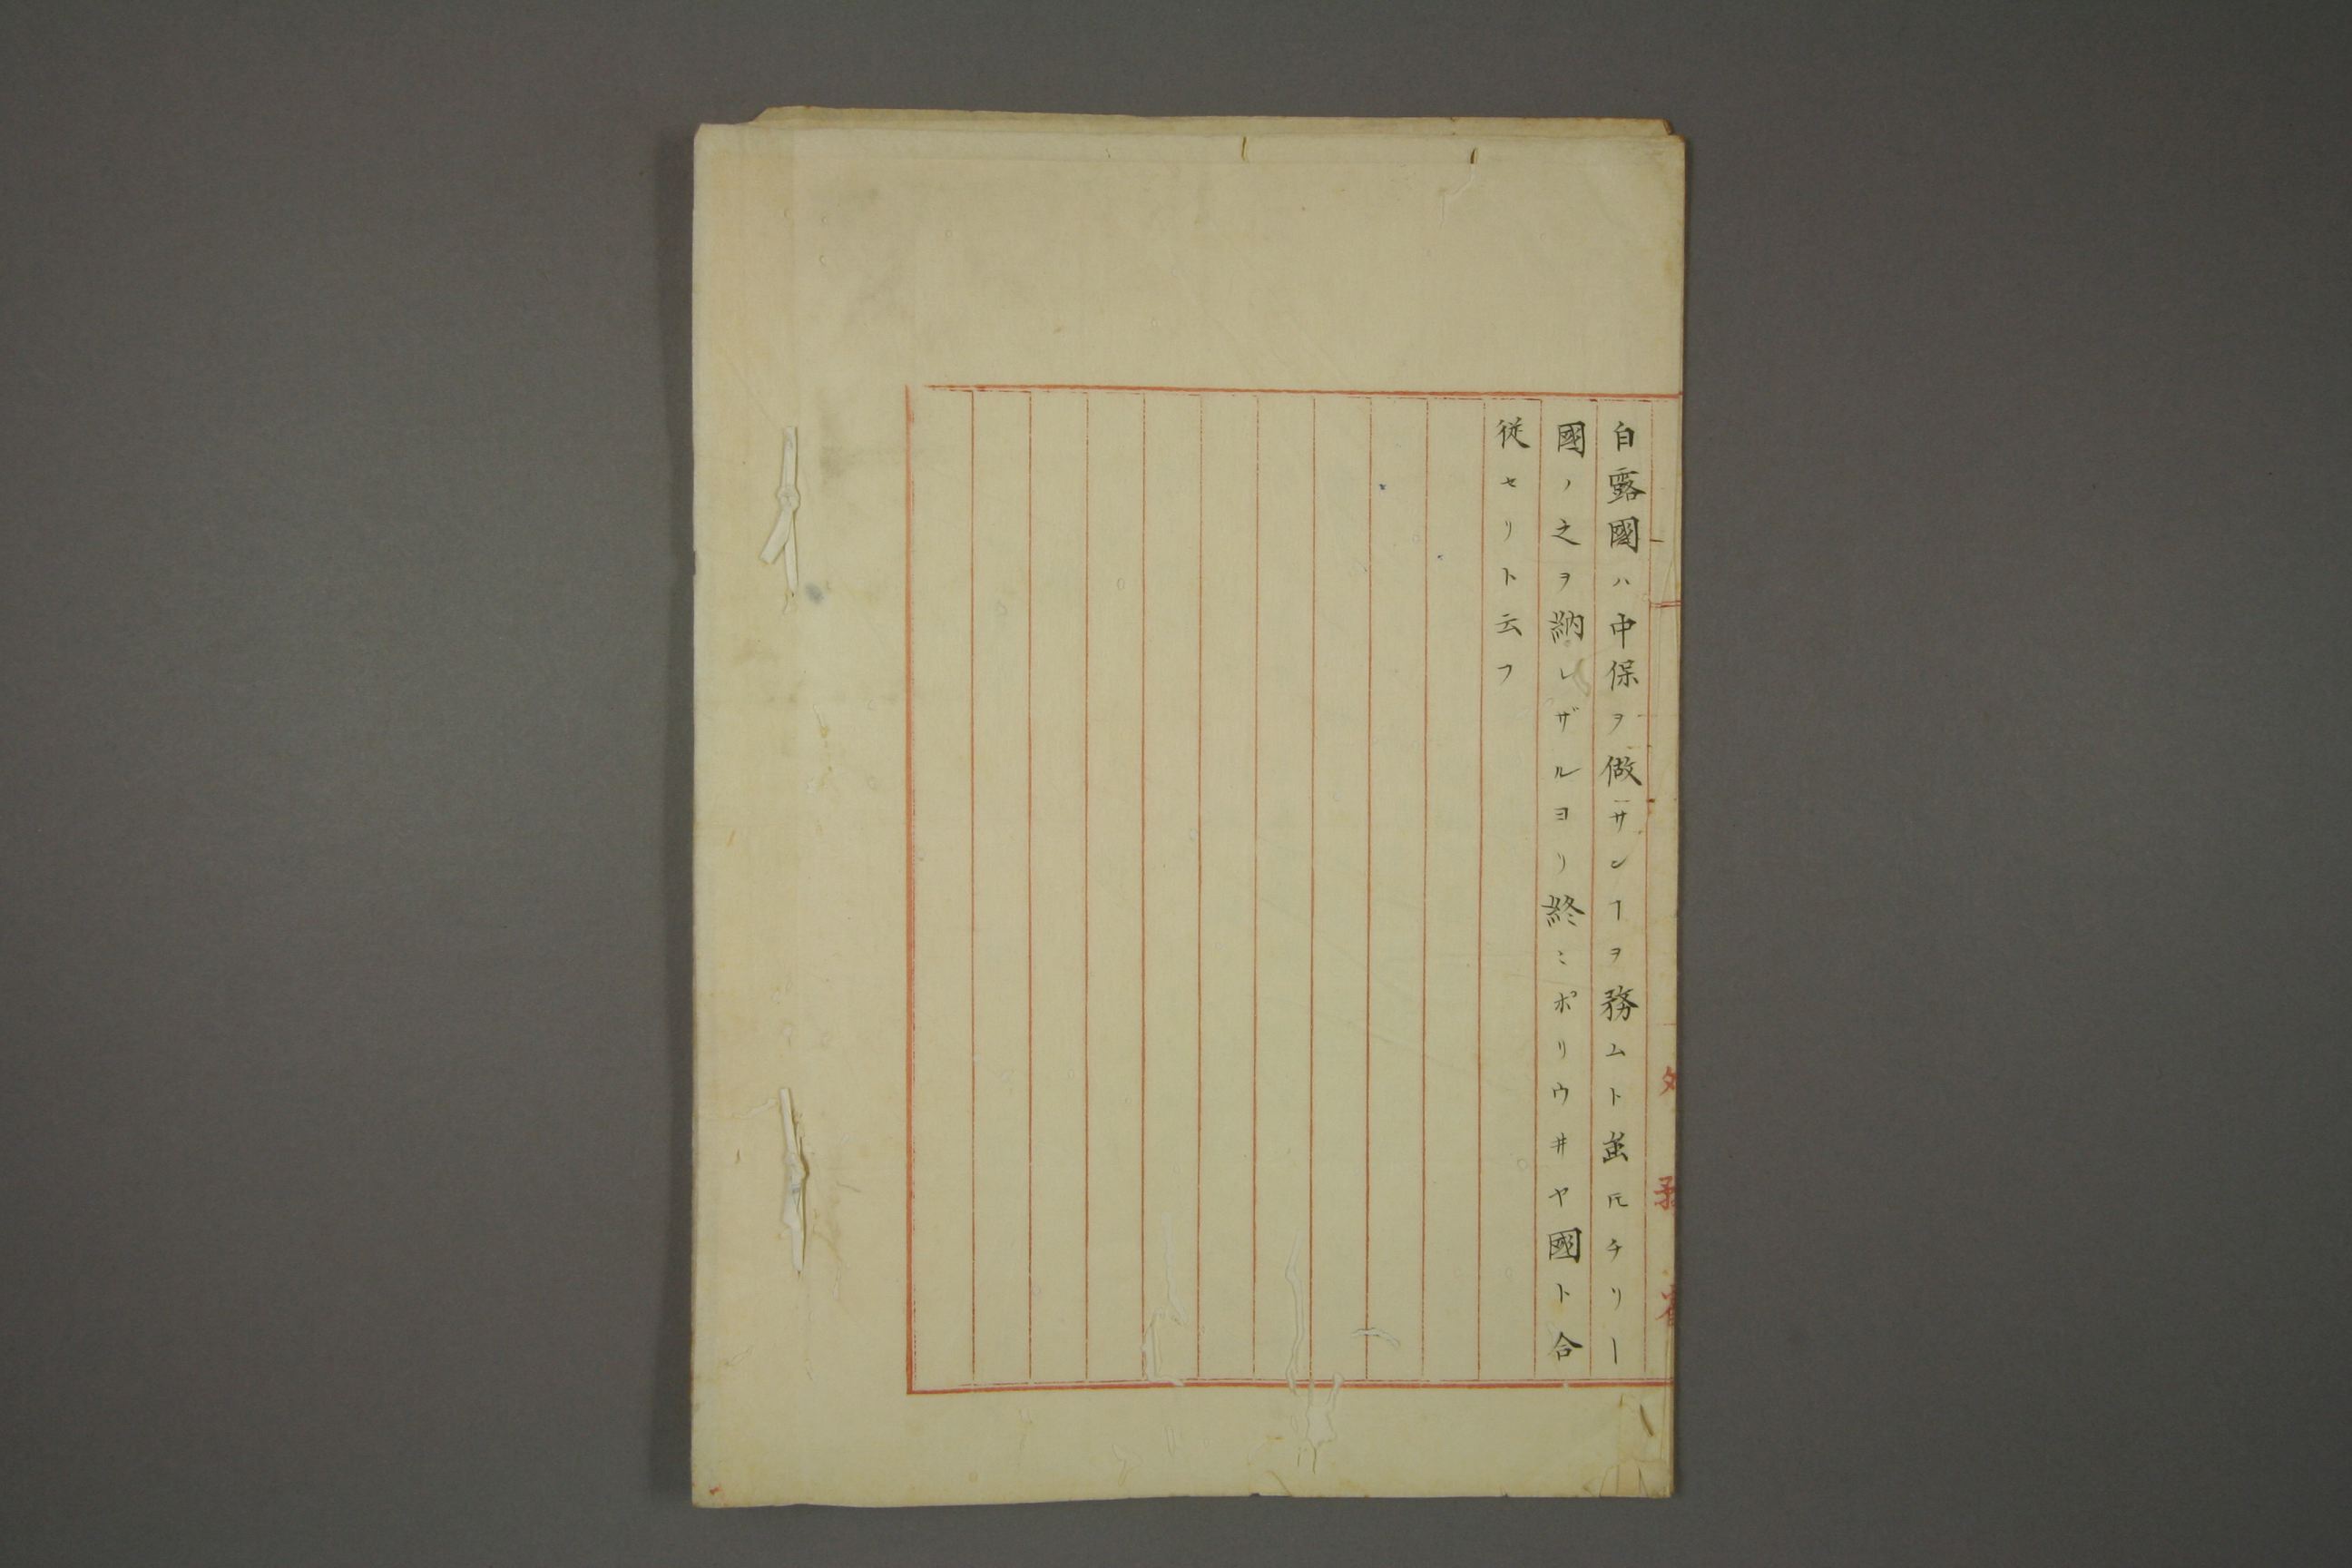 白露國ハ中保ヲ做サンヿヲ務ムト虽𪜈チリー
國ノ之ヲ納レザルヨリ終ニポリウヰヤ國ト合
従セリト云フ
外務省